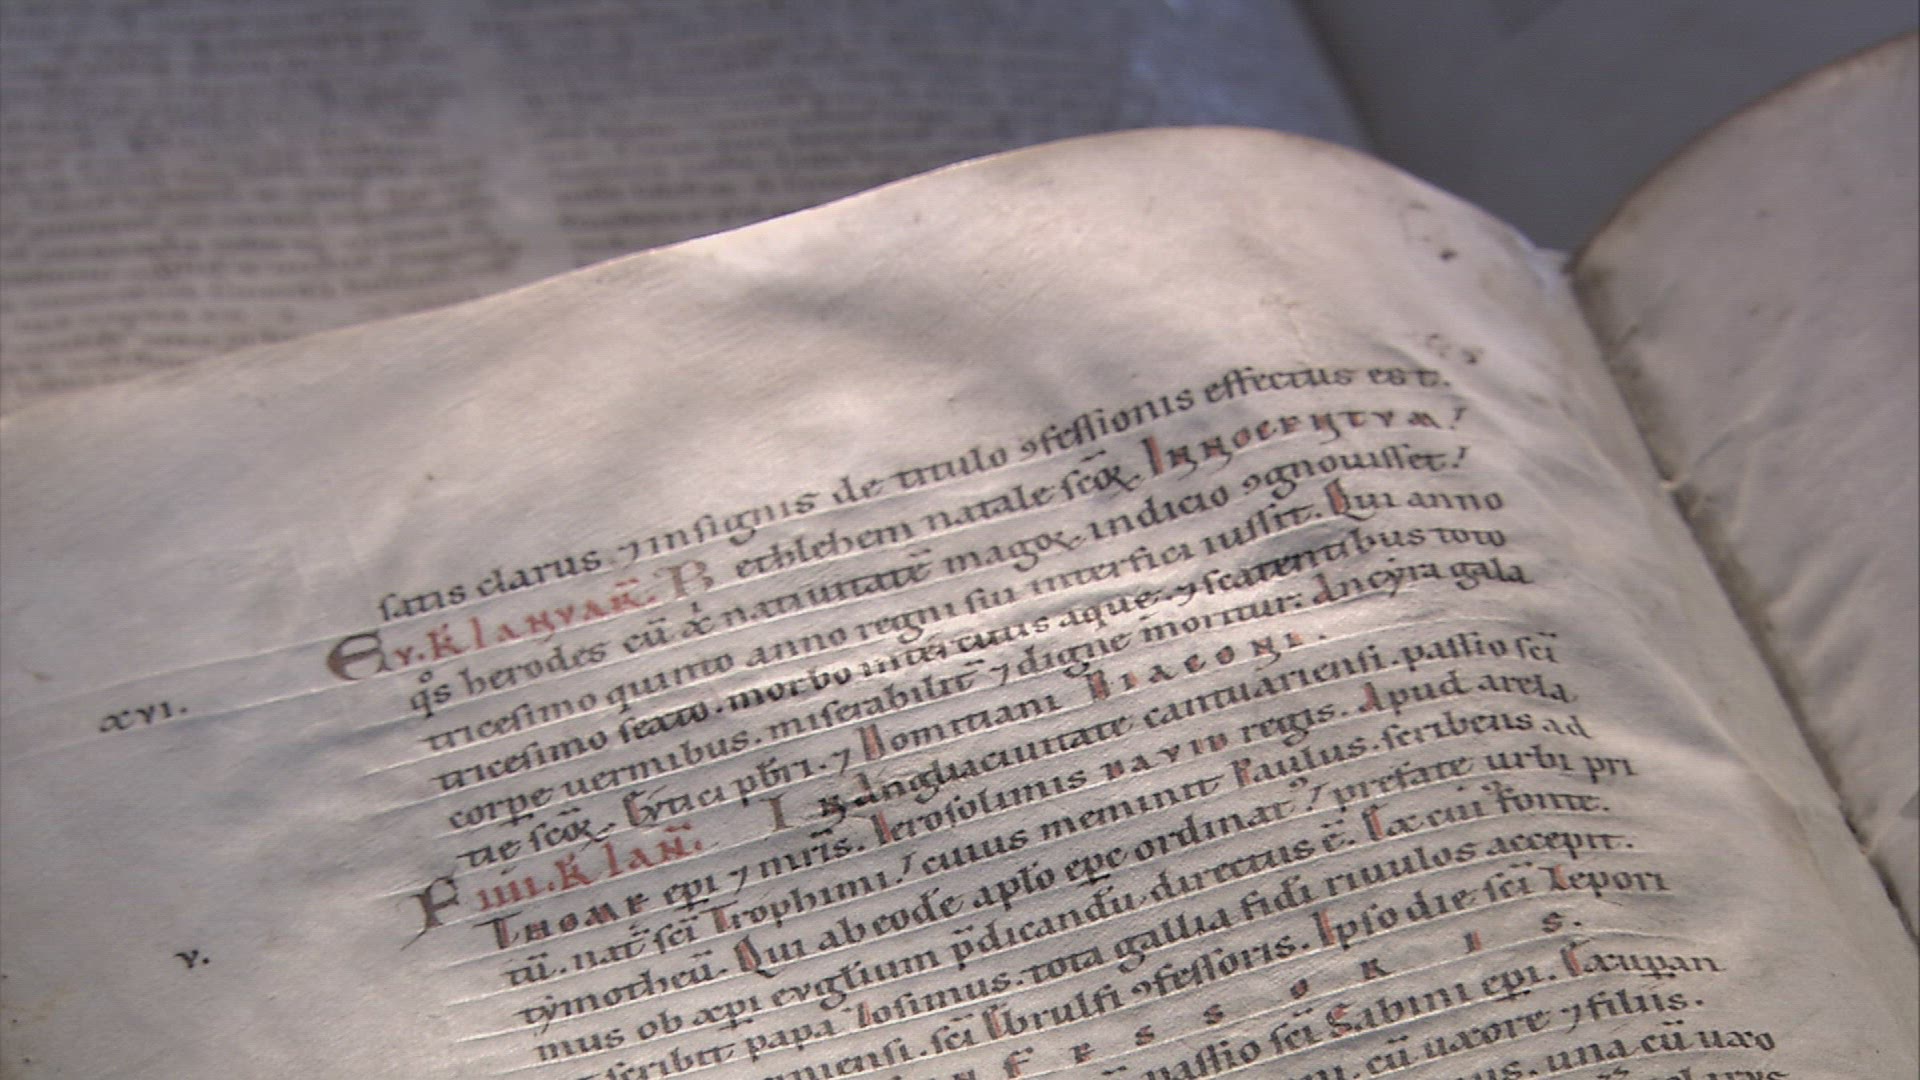 satis clarus. ⁊ insignis de titulo ꝯfessionis effectus est.
E v. Kl IANVAR̄. Bethlehem natale sc̄oꝝ INNOCENTVM!
xvi. qͦs herodes cū xp̄i natiuitatē magoꝝ indicio ꝯgnouisset!
tricesimo quinto anno regni sui interfici iussit. Qui anno
tricesimo sexto. morbo intercutis aque. ⁊ scatentibus toto
corpe uermibus. miserabilit̄ ⁊ digne moritur. Ancyra gala
tie sc̄oꝝ. Eytici pb̄ri. ⁊ Domitiani DIACONI.
F IIII. Kl IAN̄. IN Anglia ciuitate cantuariensi. passio sc̄i
v. THOME ep̄i ⁊ mr̄is. Ierosolimis DAVID regis. Apud arela
tū. nat̄ sc̄i Trophimi! cuius meminit Paulus. scribens ad
tymotheū. Qui ab eodē aplo epc ordinatꝰ! prefate urbi pri
mus ob xp̄i evglium p̄dicandū. directus ē. Ex cuiꝰ fonte.
scribit papa Zosimus. tota gallia fidi riuulos accepit.
ensi. sc̄i Ebrulfi ꝯfessoris. Ipso die sc̄i Zepori
N F E S S O R I S.
passio sc̄i Sabini ep̄i. Exupan
cū uxore ⁊ filiis.
una cū uxo